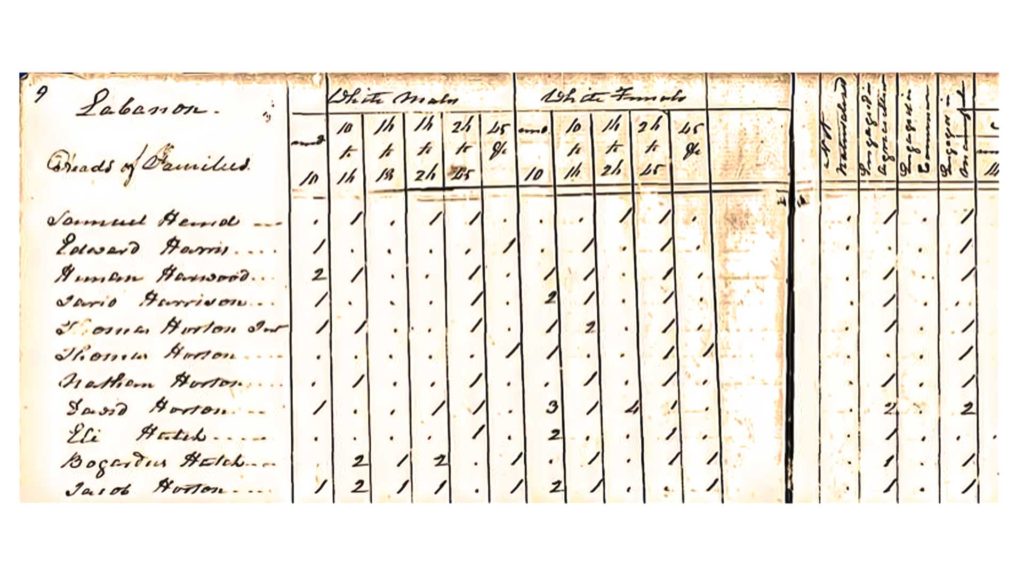 9 Labanon. White Males White Females
Heads of Families
und 10 | 10 to 16 | 16 to 18 | 16 to 26 | 26 to 45 | 45 &c | und 10 | 10 to 16 | 16 to 26 | 26 to 45 | 45 &c | Not Naturalized | Engaged in Agriculture | Engaged in Commerce | Engaged in
Samuel . 1 . 1 1 . . . 1 1 . . 1 . 1
Edward Harris 1 . . . . 1 . 1 . 1 . . 1 . 1
Harwood 2 1 . . 1 . 1 1 . 1 . . 1 . 1
Harrison 1 . . . 1 . 2 1 . 1 . . 1 . 1
Thomas Horton Jur 1 1 . . 1 . 1 2 . 1 . . 1 . 1
Thomas Horton . . . . . 1 1 . . 1 1 . . . 1
Nathan Horton . 1 . . 1 . . 1 . 1 . . 1 . 1
David Horton 1 . . 1 1 . 3 1 4 1 . . 2 . 2
Eli Hatch . . . . 1 . 2 . . 1 . . 1 . . .
Bogardus Hatch . 2 1 2 . 1 . 1 . 1 1 . 1 . 1
Jacob Horton 1 2 1 1 . 1 2 1 . . 1 . 1 . 1